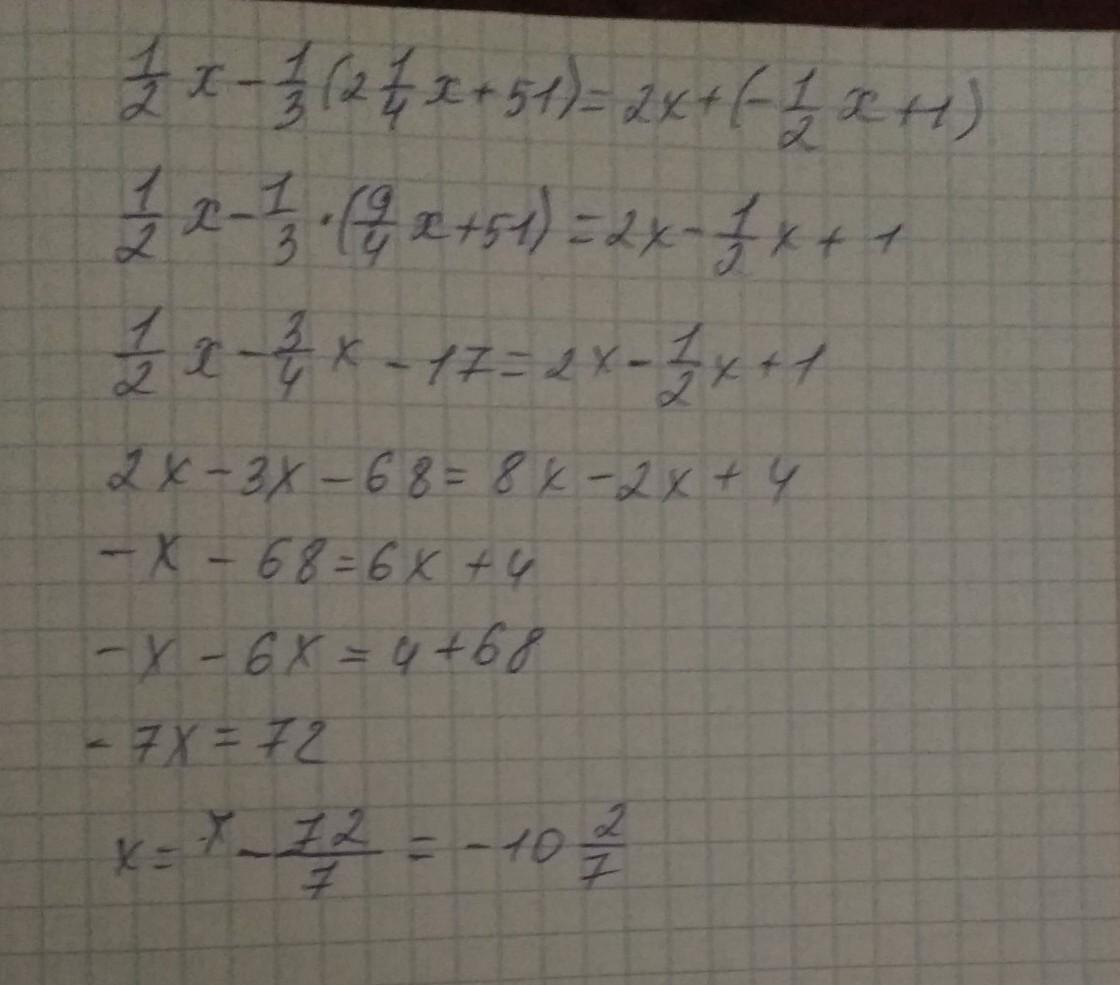 1/2 x - 1/3 (2 1/4 x + 51) = 2x + (- 1/2 x + 1)
1/2 x - 1/3 · (9/4 x + 51) = 2x - 1/2 x + 1
1/2 x - 3/4 x - 17 = 2x - 1/2 x + 1
2x - 3x - 68 = 8x - 2x + 4
- x - 68 = 6x + 4
- x - 6x = 4 + 68
- 7x = 72
x = - 72/7 = - 10 2/7